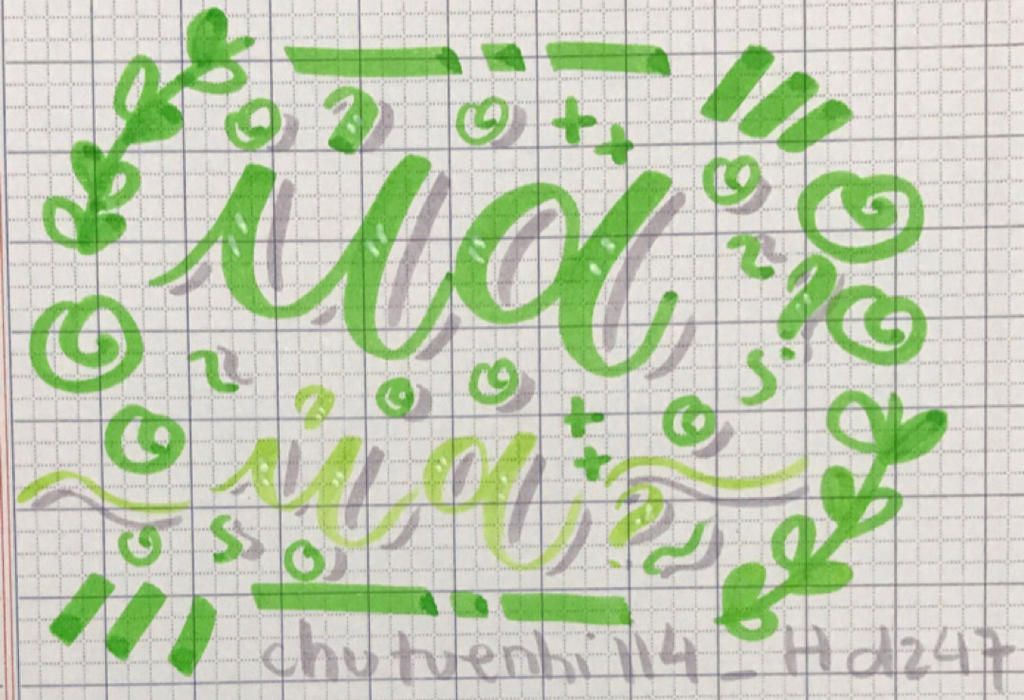 ủa?
ủa?
chutuenhi 114 _ Hdz247